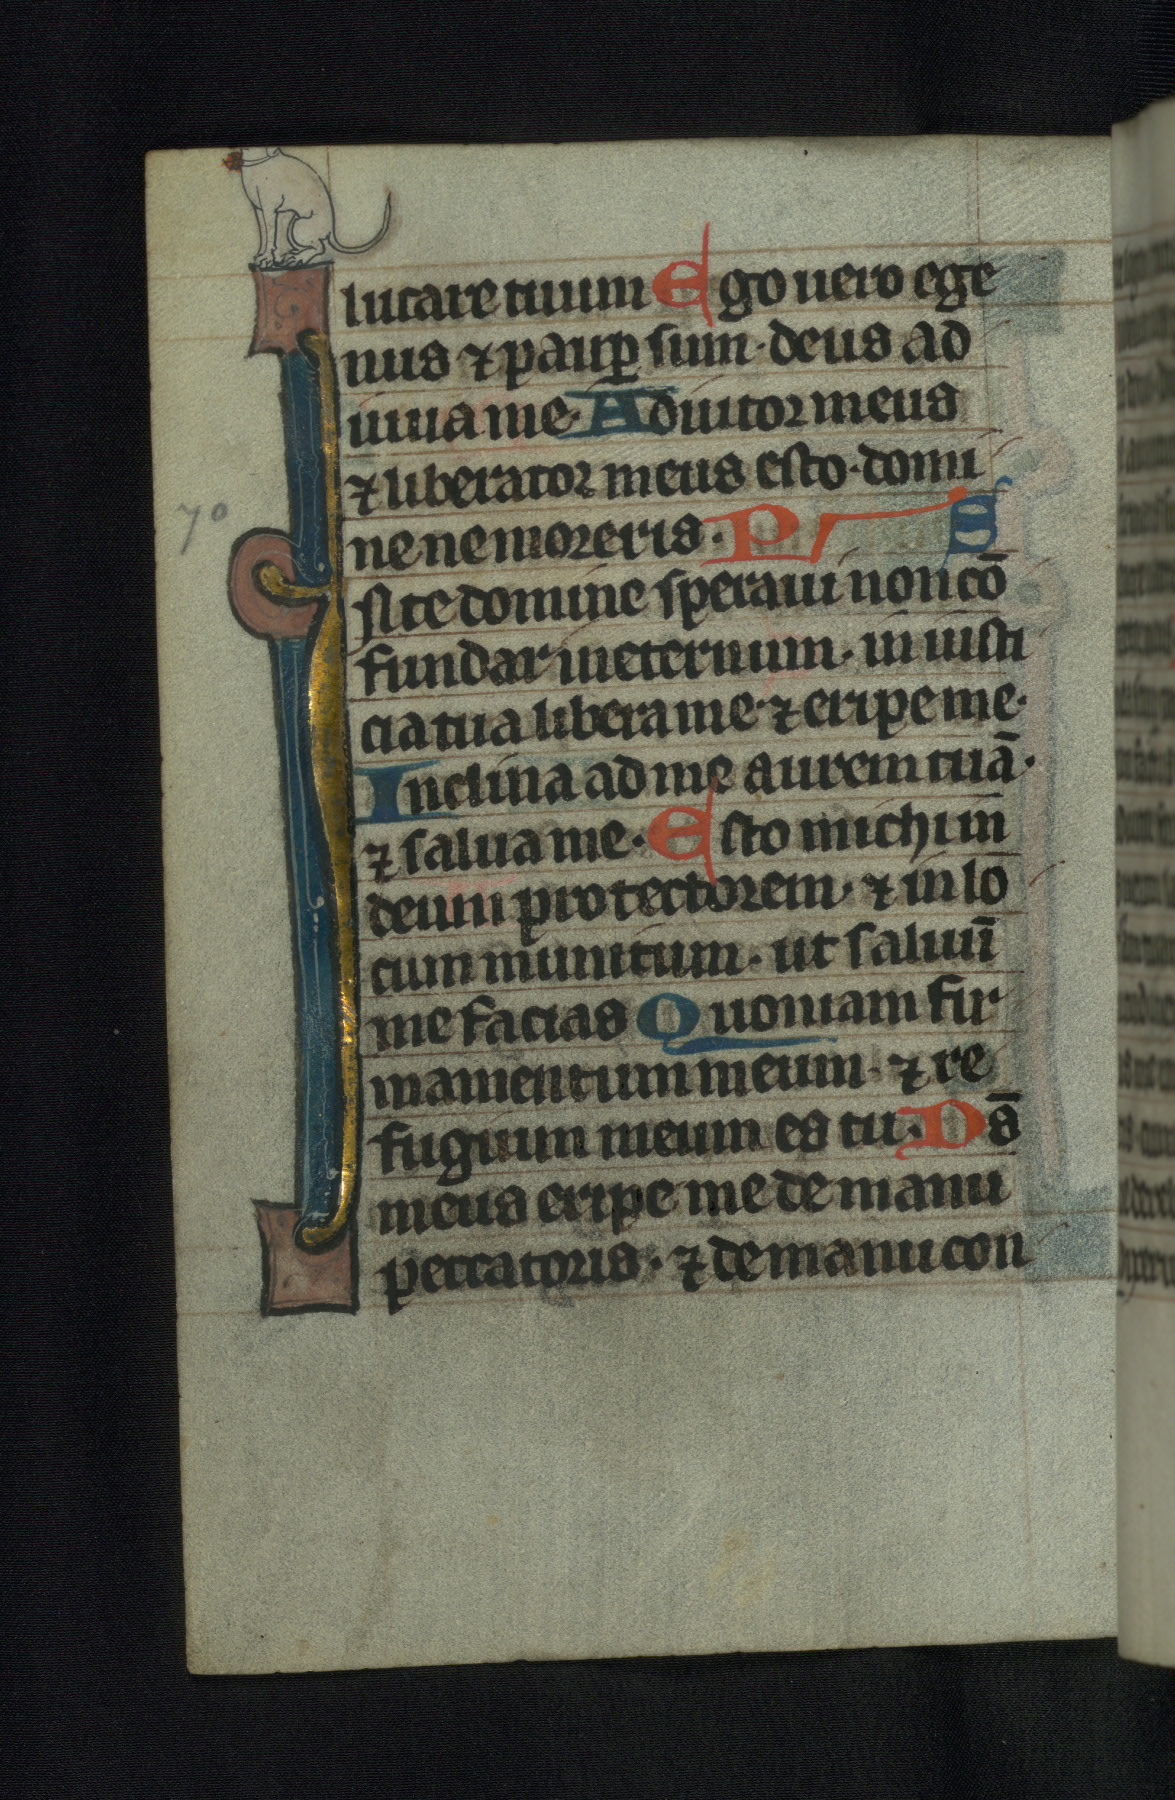 lutare tuum Ego uero ege
nus ⁊ paup sum · deus ad
iuua me · Adiutor meus
⁊ liberator meus esto · domi
ne ne moreris · Ps
70
I te domine speraui non cō
fundar in eternum · in iusti
cia tua libera me · ⁊ eripe me ·
Inclina ad me aurem tuā ·
⁊ salua me · Esto michi in
deum protectorem · ⁊ in lo
cum munitum · ut saluū
me facias Quoniam fir
mamentum meum · ⁊ re
fugium meum es tu · Ds̄
meus eripe me de manu
peccatoris · ⁊ de manu con